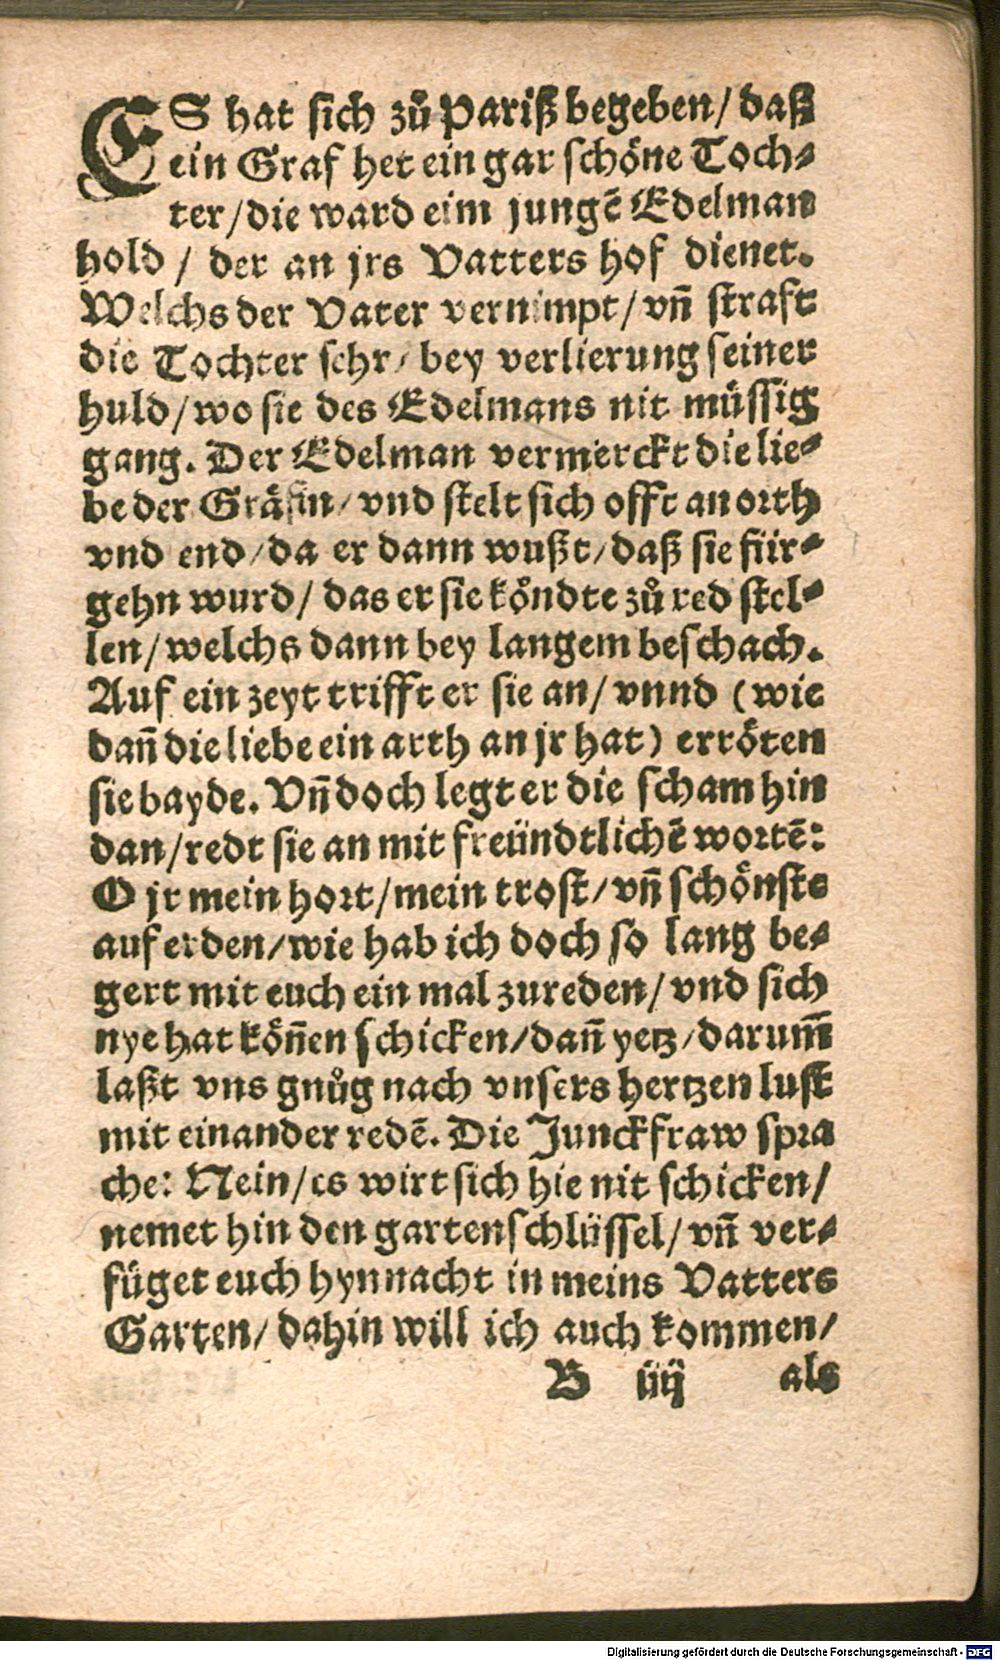 ES hat sich zů Pariß begeben / daß
ein Graf het ein gar schöne Toch⸗
ter / die ward eim jungẽ Edelman
hold / der an jrs Vatters hof dienet.
Welchs der Vater vernimpt / vñ straft
die Tochter sehr / bey verlierung seiner
huld / wo sie des Edelmans nit müssig
gang. Der Edelman vermerckt die lie⸗
be der Gräfin / vnd stelt sich offt an orth
vnd end / da er dann wußt / daß sie für⸗
gehn wurd / das er sie köndte zů red stel⸗
len / welchs dann bey langem beschach.
Auf ein zeyt trifft er sie an / vnnd (wie
dañ die liebe ein arth an jr hat) erröten
sie bayde. Vñ doch legt er die scham hin
dan / redt sie an mit freündtlichẽ wortẽ:
O jr mein hort / mein trost / vñ schönste
auf erden / wie hab ich doch so lang be⸗
gert mit euch ein mal zureden / vnd sich
nye hat köñen schicken / dañ yetz / darum̃
laßt vns gnůg nach vnsers hertzen lust
mit einander redẽ. Die Junckfraw spra
che: Nein / es wirt sich hie nit schicken /
nemet hin den gartenschlüssel / vñ ver⸗
füget euch hynnacht in meins Vatters
Garten / dahin will ich auch kommen /
B iiij als
Digitalisierung gefördert durch die Deutsche Forschungsgemeinschaft - DFG